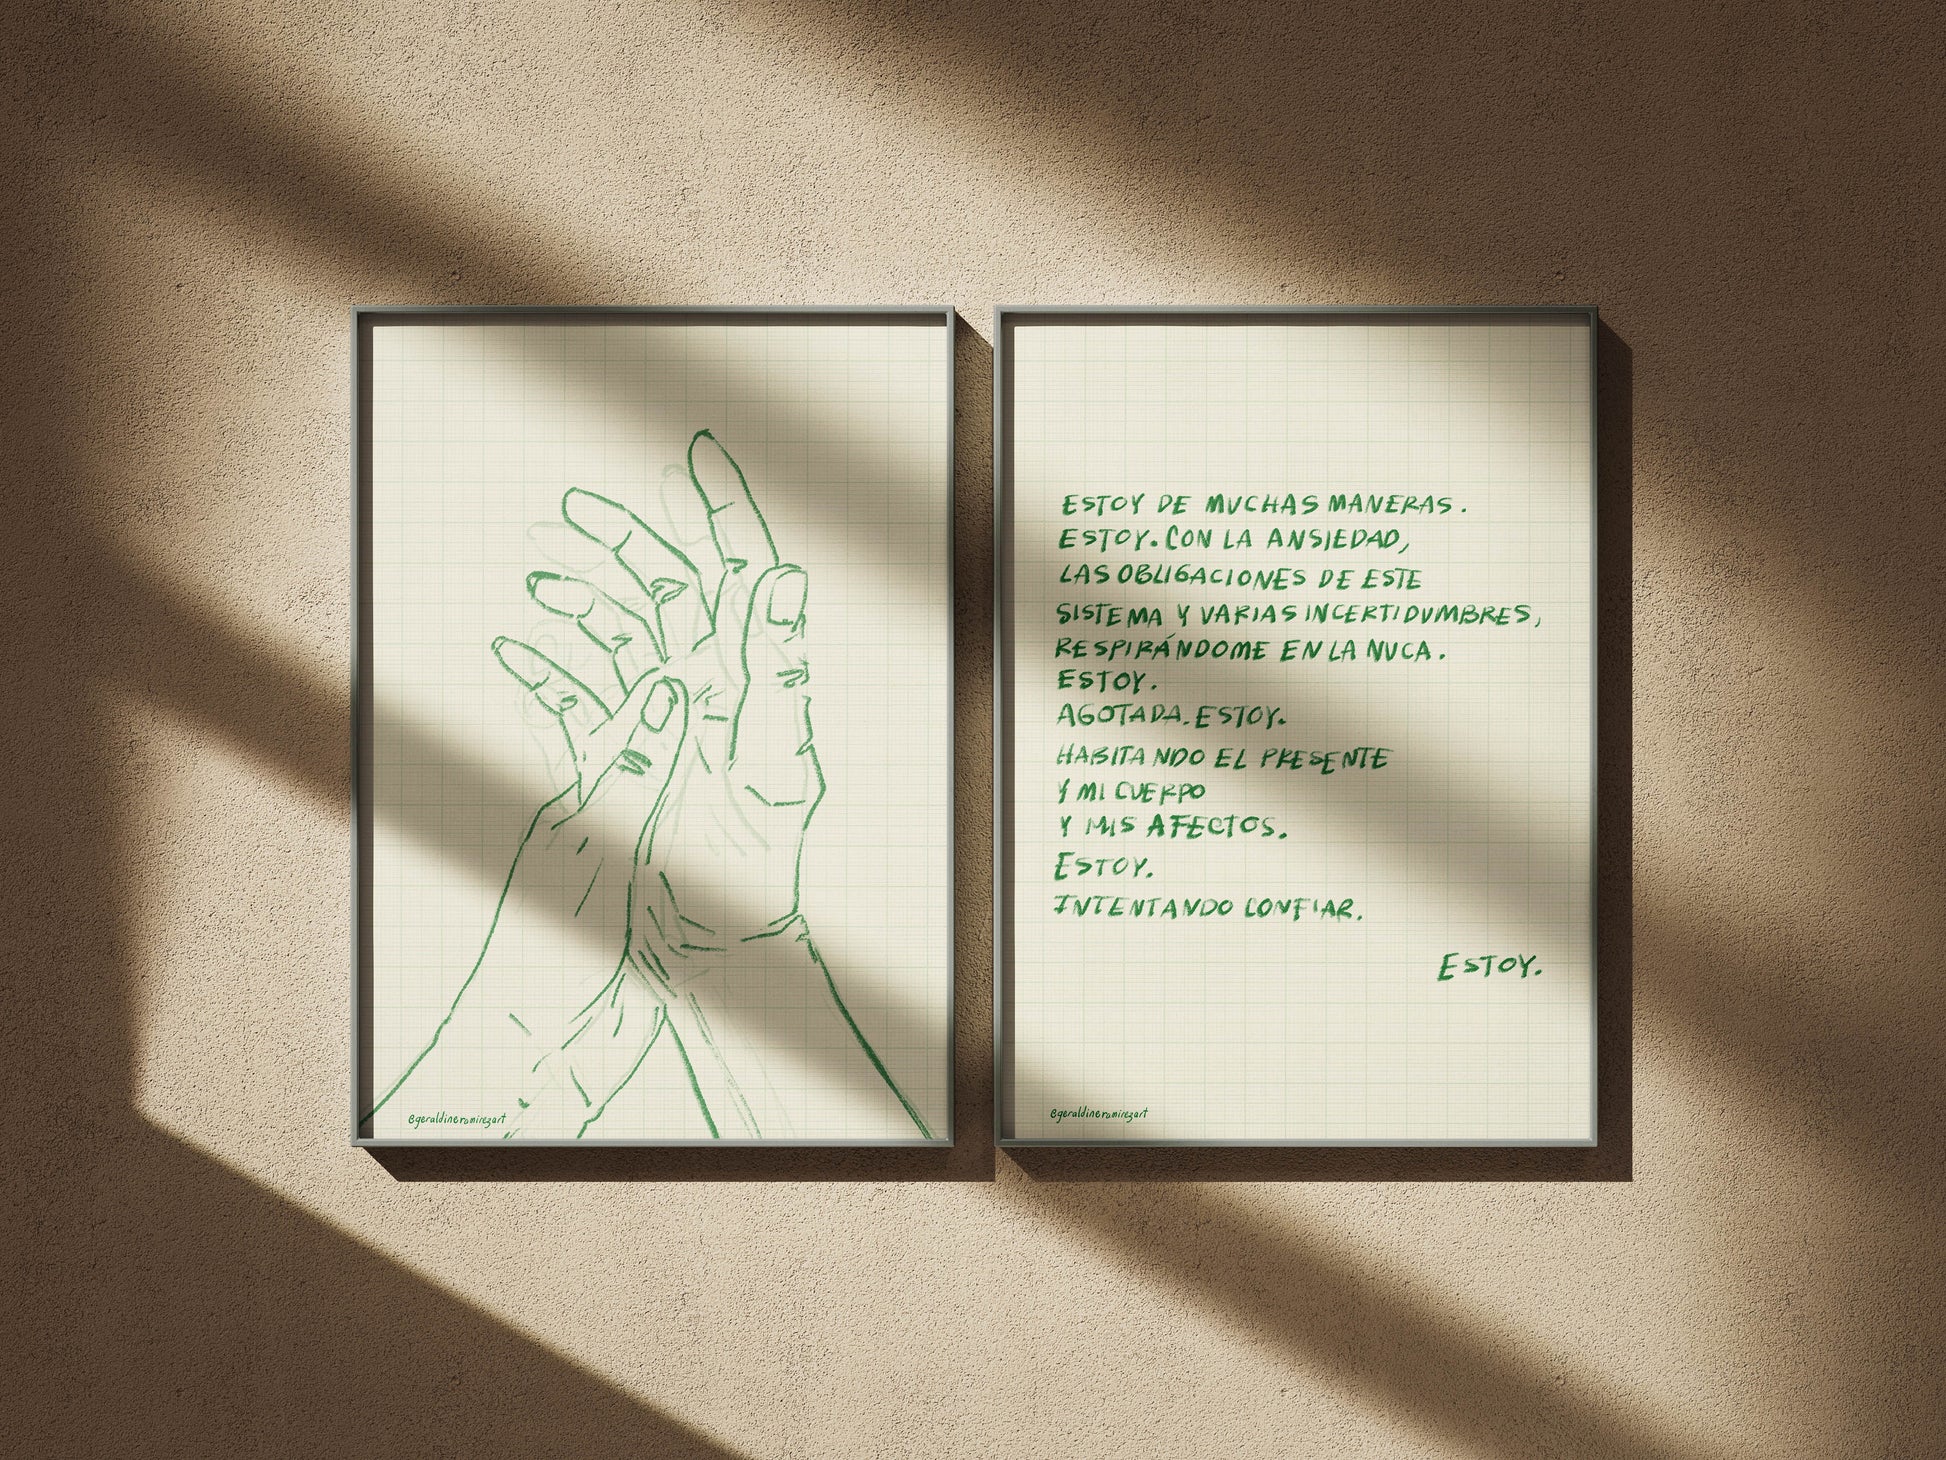 ESTOY DE MUCHAS MANERAS.
ESTOY. CON LA ANSIEDAD,
LAS OBLIGACIONES DE ESTE
SISTEMA Y VARIAS INCERTIDUMBRES,
RESPIRÁNDOME EN LA NUCA.
ESTOY.
AGOTADA. ESTOY.
HABITANDO EL PRESENTE
Y MI CUERPO
Y MIS AFECTOS.
ESTOY.
INTENTANDO CONFIAR.
ESTOY.
@geraldineramirezart
@geraldineramirezart